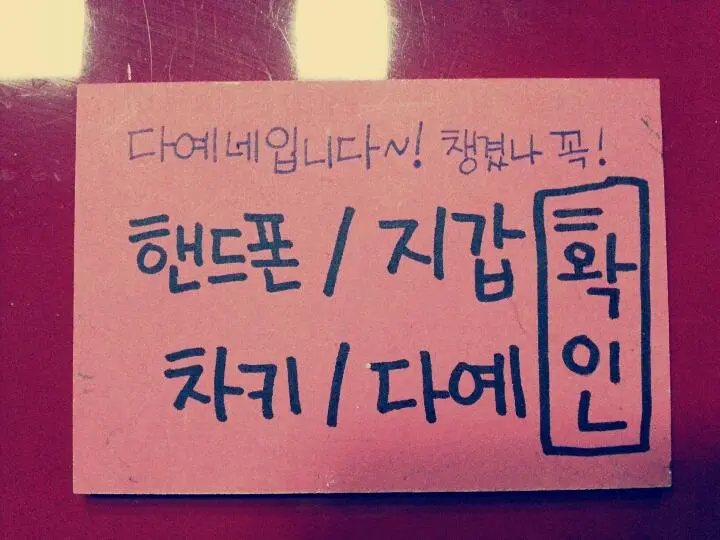 다예네입니다~! 챙겼나 꼭!
핸드폰 / 지갑
차키 / 다예
확인